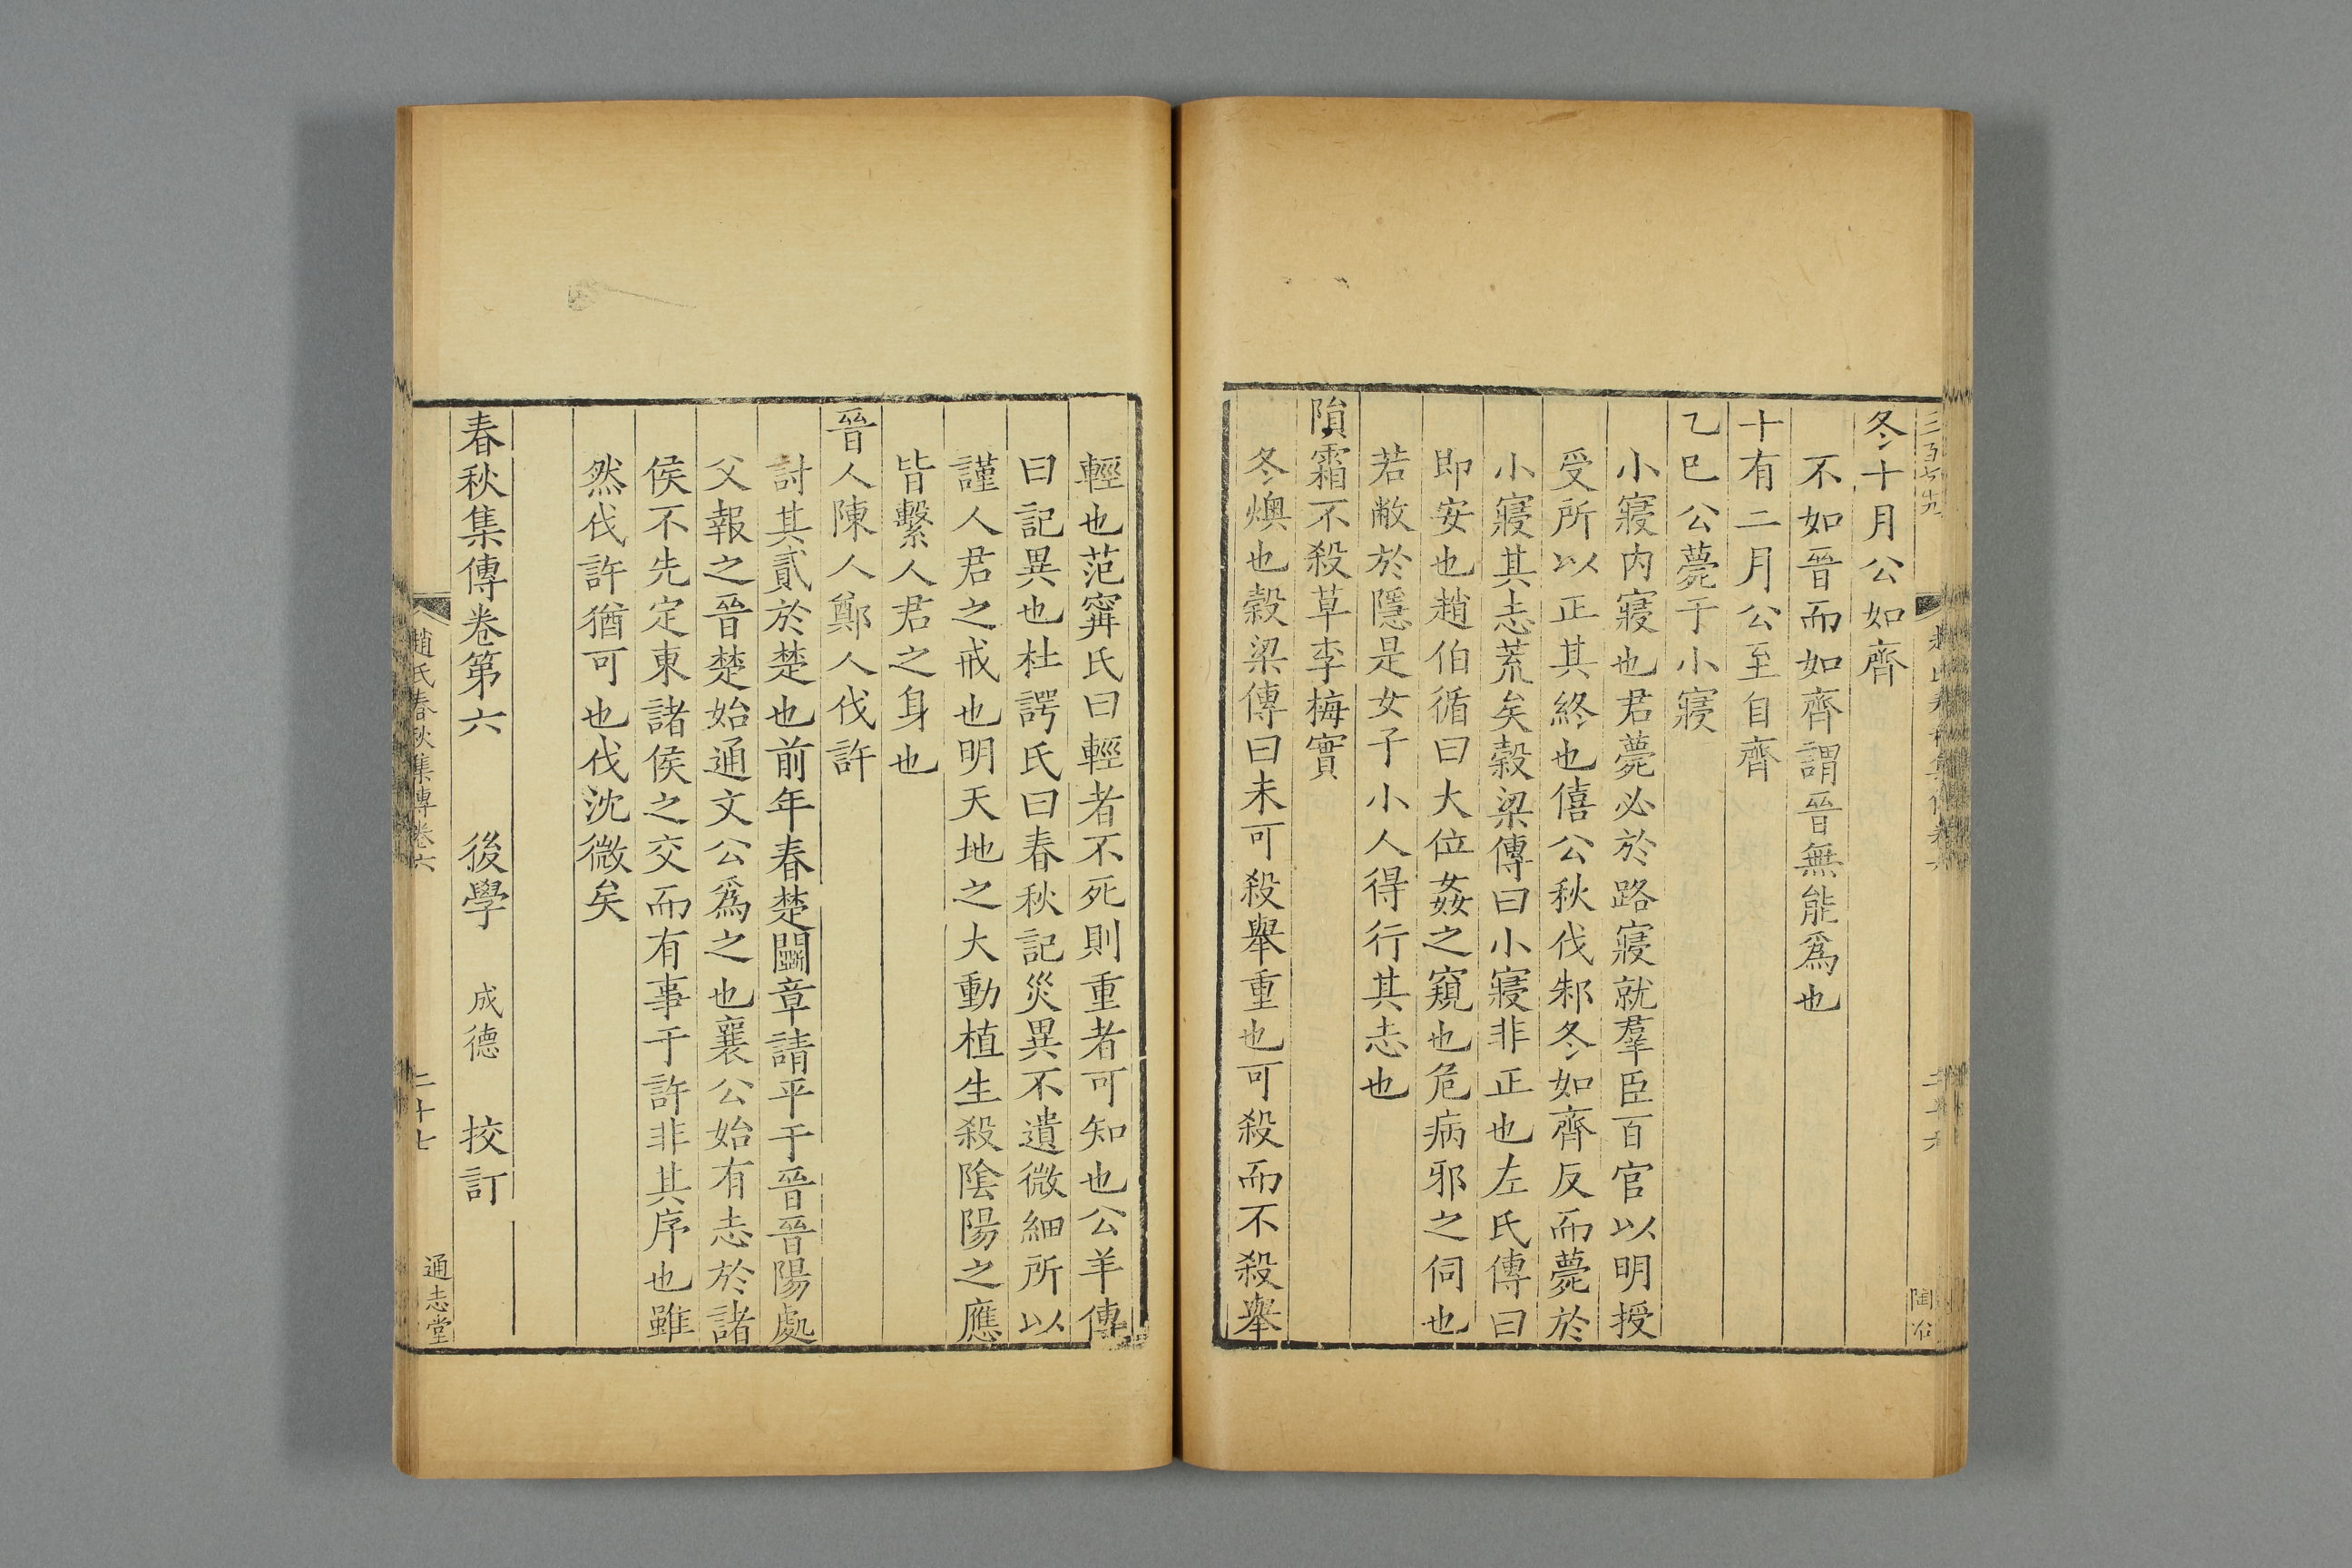 冬十月公如齊
不如晉而如齊謂晉無能爲也
十有二月公至自齊
乙巳公薨于小寢
小寢内寢也君薨必於路寢就羣臣百官以明授
受所以正其終也僖公秋伐邾冬如齊反而薨於
小寢其志荒矣榖梁傳曰小寢非正也左氏傳曰
即安也趙伯循曰大位姦之窺也危病邪之伺也
若敝於隱是女子小人得行其志也
隕霜不殺草李梅實
冬燠也榖梁傳曰未可殺舉重也可殺而不殺舉
輕也范寗氏曰輕者不死則重者可知也公羊傳
曰記異也杜諤氏曰春秋記災異不遺微細所以
謹人君之戒也明天地之大動植生殺陰陽之應
皆繫人君之身也
晉人陳人鄭人伐許
討其貳於楚也前年春楚鬬章請平于晉晉陽處
父報之晉楚始通文公爲之也襄公始有志於諸
侯不先定東諸侯之交而有事于許非其序也雖
然伐許猶可也伐沈微矣
春秋集傳卷第六 後學 成德 挍訂
趙氏春秋集傳卷六 二十七 通志堂